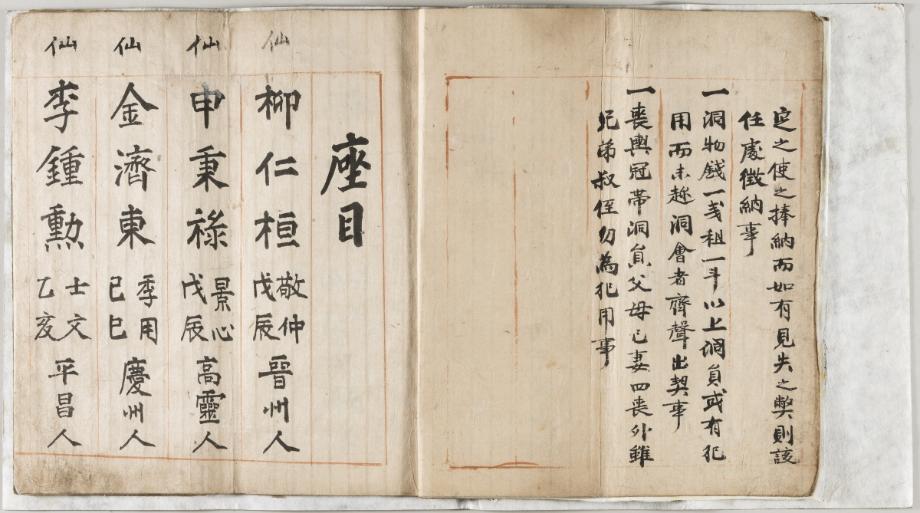 定之使之捧納而如有見失之弊則該
任處徵納事
一洞物錢一戔租一斗以上洞員或有犯
用而未趂洞會者齊聲出契事
一喪輿冠帶洞員父母己妻四喪外雖
兄弟叔侄勿為犯用事
座目
仙 柳仁桓 敬仲 戊辰 晉州人
仙 申秉祿 景心 戊辰 高靈人
仙 金濟東 季用 己巳 慶州人
仙 李鍾勳 士文 乙亥 平昌人